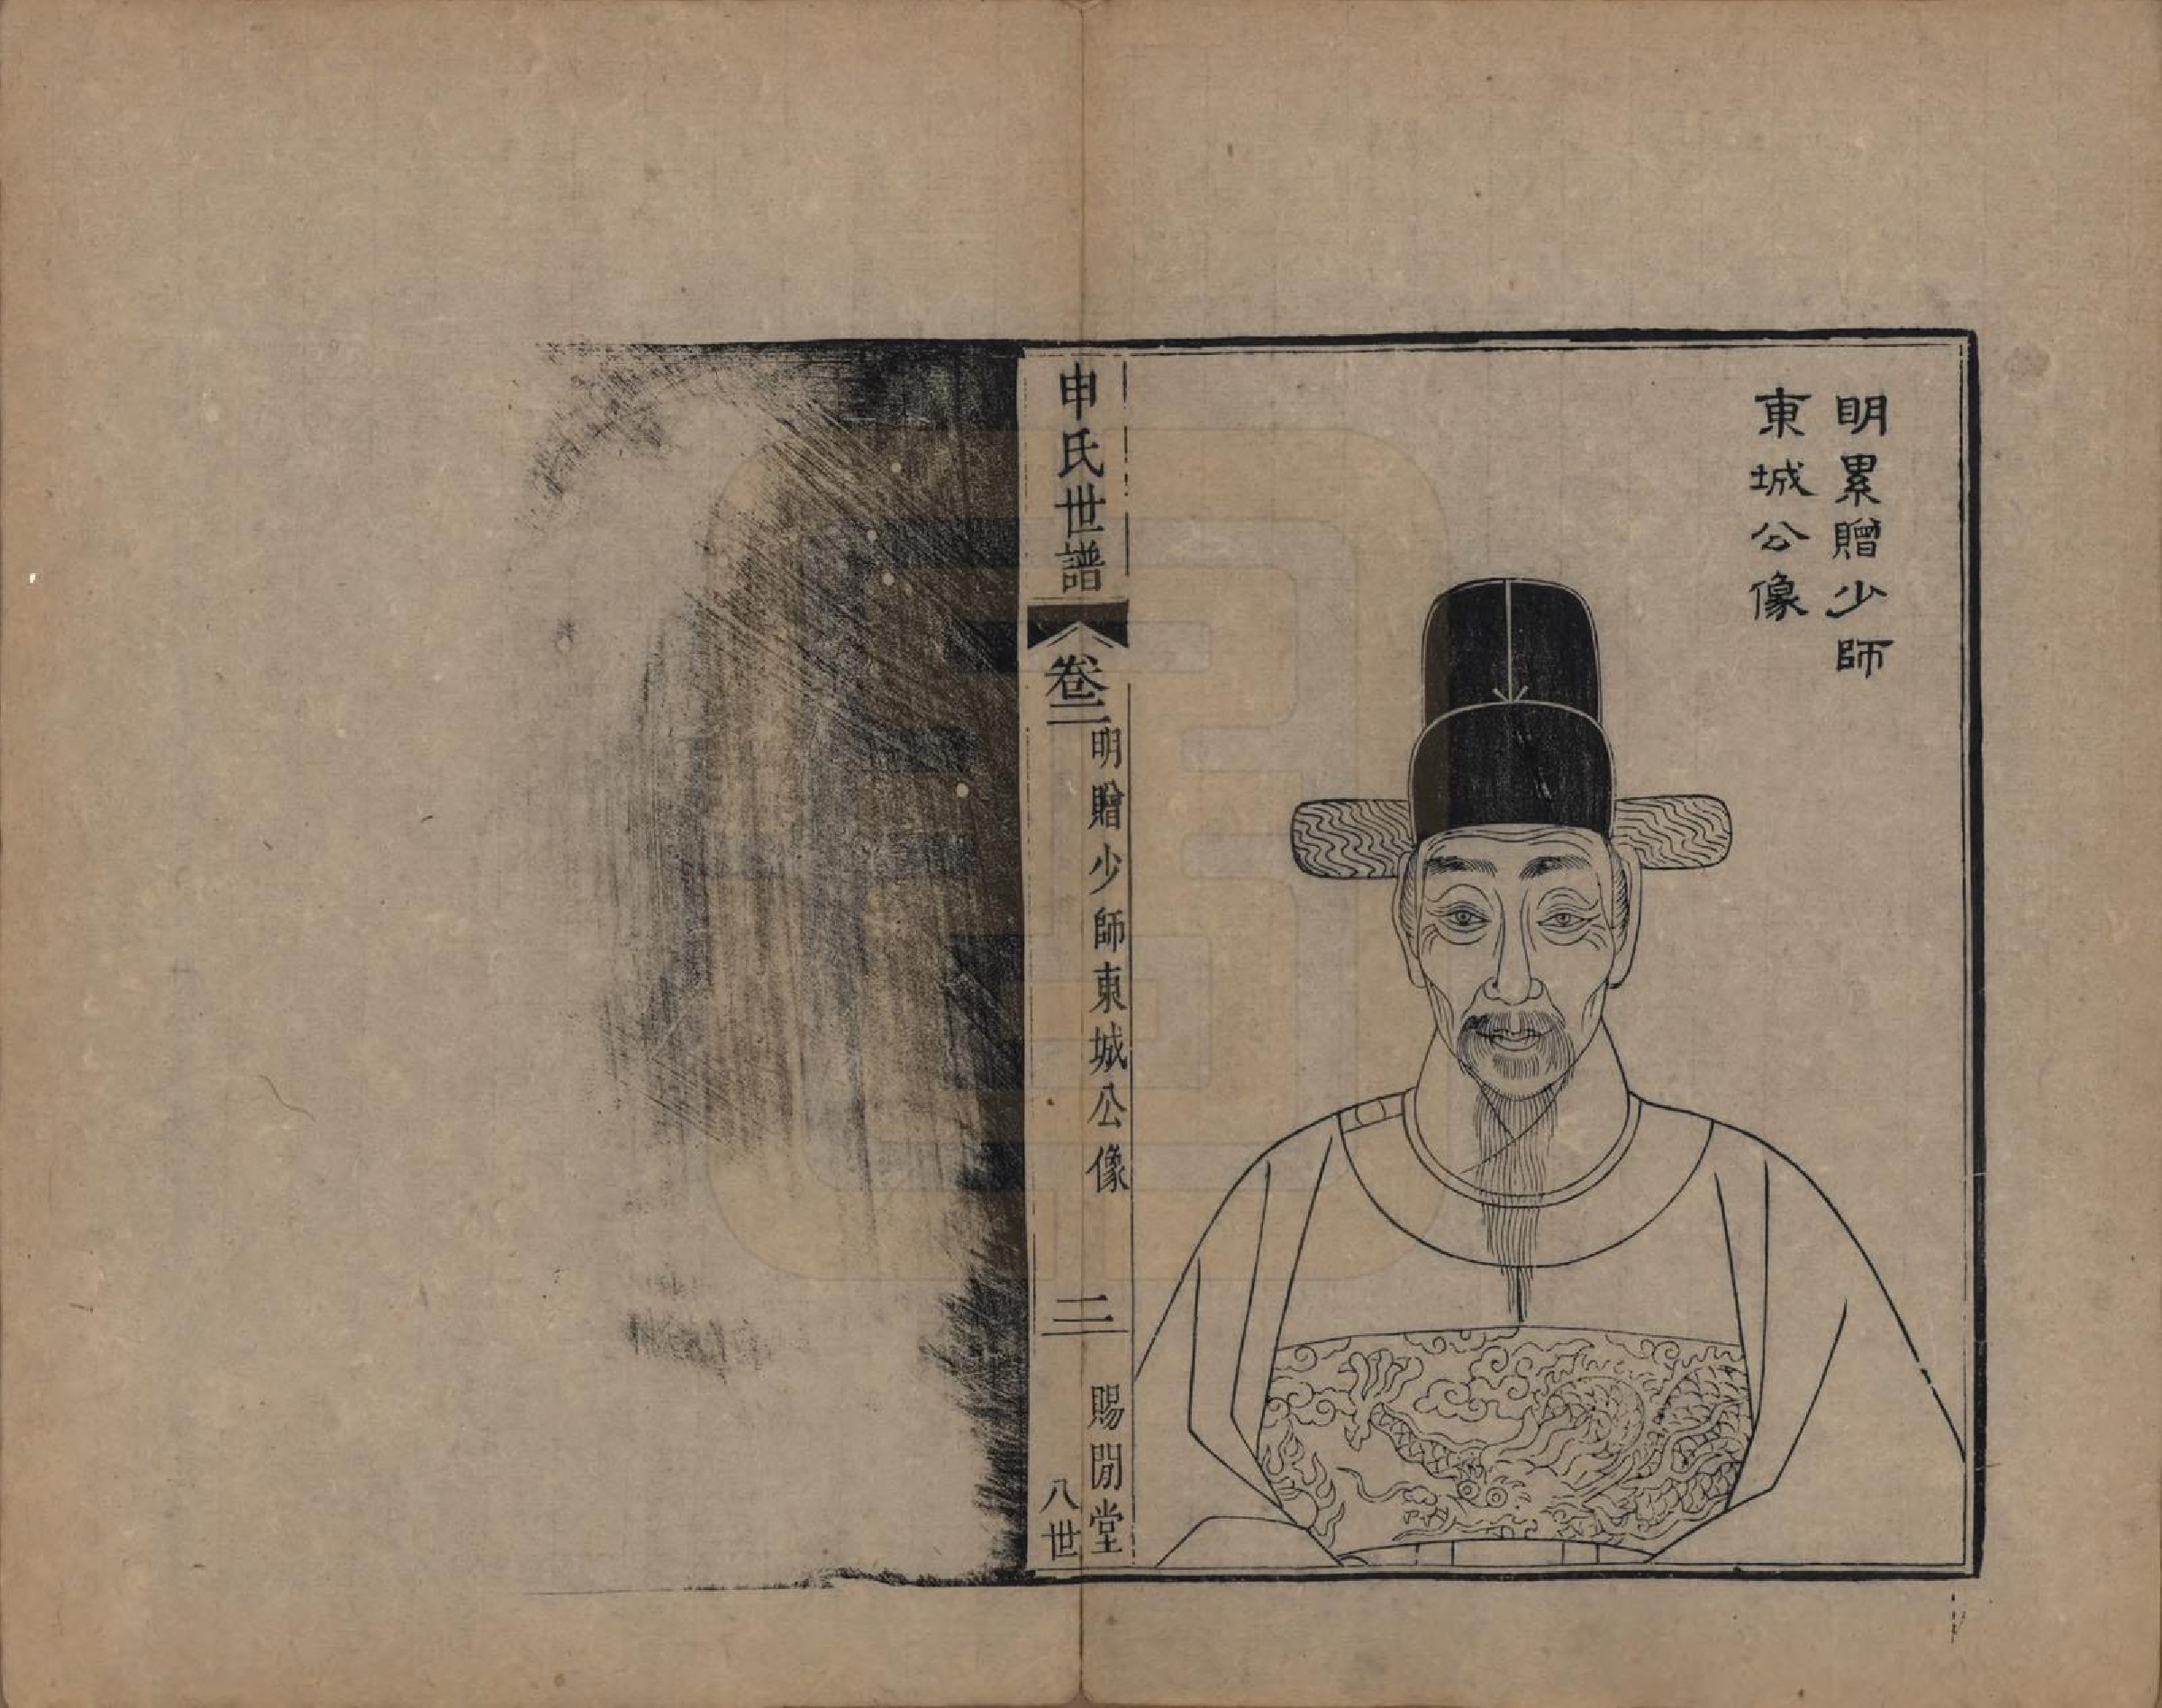 明累贈少師
東城公像
申氏世譜
卷二
明贈少師東城公像
二
賜閒堂
八世